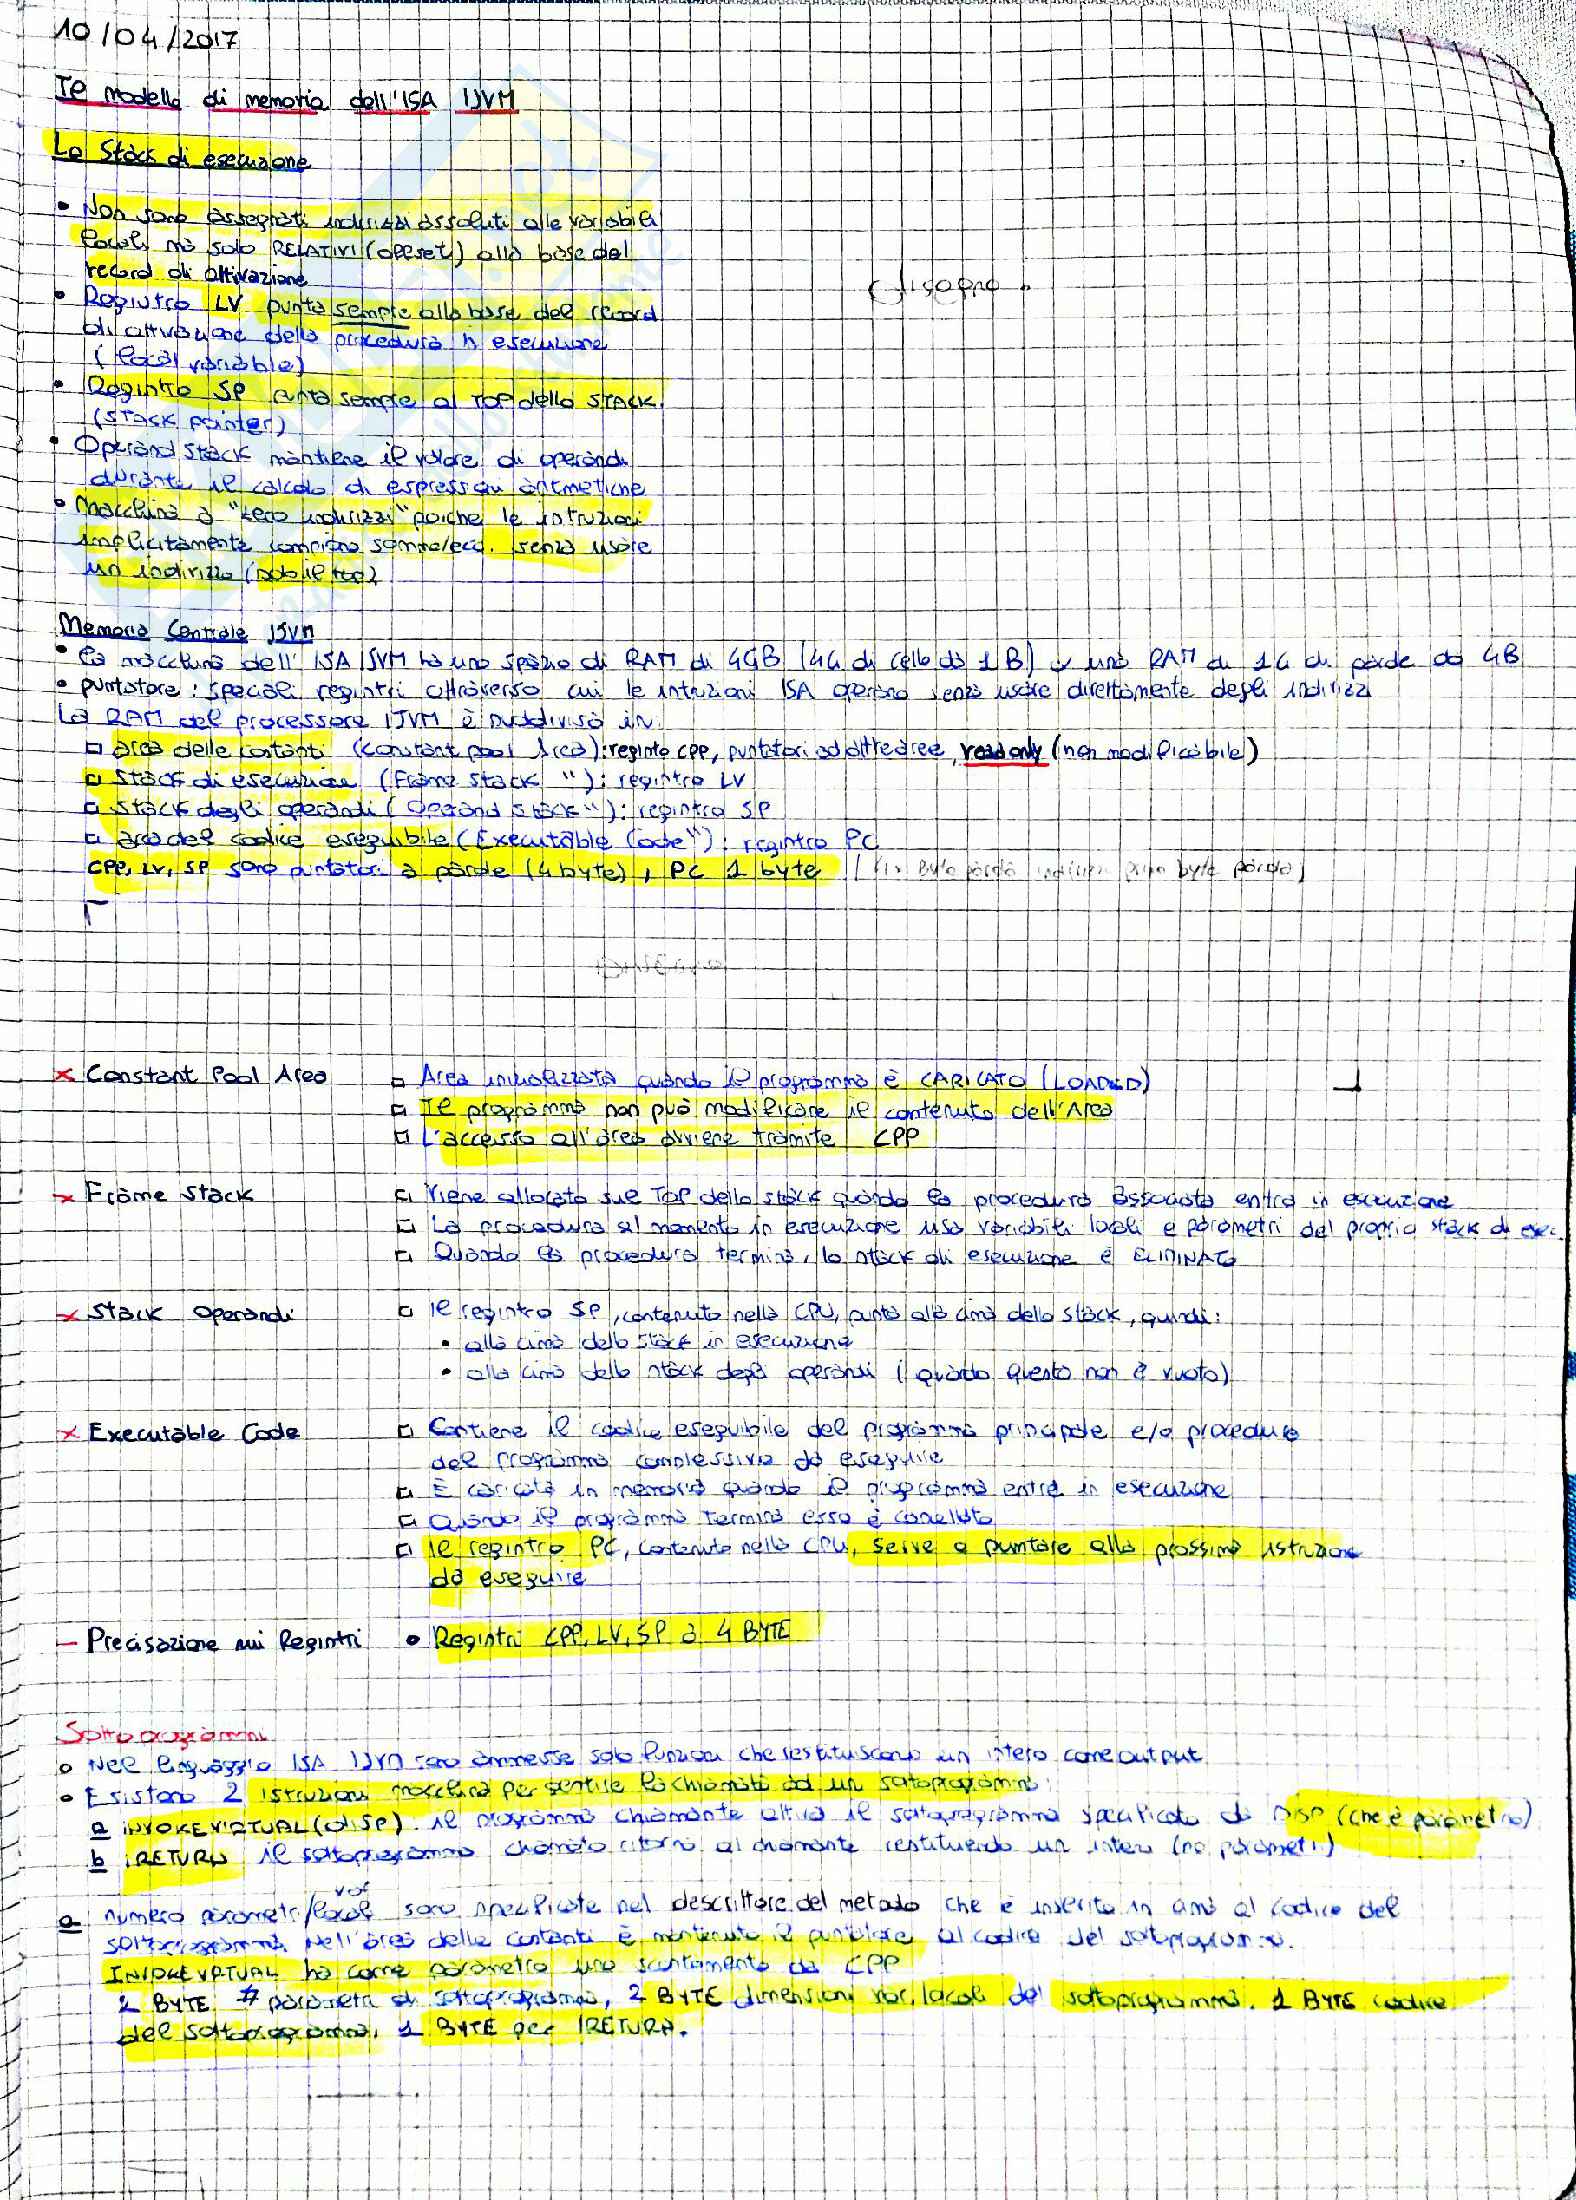 10/04/2017
Il modello di memoria dell'ISA IJVM
Lo Stack di esecuzione
• Non sono assegnati indirizzi assoluti alle variabili
locali ma solo RELATIVI (offset) alla base del
record di attivazione
• Registro LV punta sempre alla base del record
di attivazione della procedura in esecuzione
(local variable)
• Registro SP punta sempre al TOP dello STACK.
(STACK pointer)
• Operand Stack mantiene il valore di operandi
durante il calcolo di espressioni aritmetiche
• Macchina a "zero indirizzi" poiché le istruzioni
implicitamente compiono somme/ecc. senza usare
un indirizzo (solo il top)
disegno
Memoria Centrale IJVM
• La macchina dell'ISA IJVM ha uno spazio di RAM di 4GB (4G di celle da 1B) o una RAM di 1G di parole da 4B
• puntatore: speciali registri attraverso cui le istruzioni ISA operano senza usare direttamente degli indirizzi
La RAM del processore IJVM è suddivisa in:
□ area delle costanti (Constant pool Area): registro CPP, puntatori ad altre aree, read only (non modificabile)
□ Stack di esecuzione (Frame Stack "): registro LV
□ Stack degli operandi (Operand Stack "): registro SP
□ area del codice eseguibile (Executable Code "): registro PC
CPP, LV, SP sono puntatori a parole (4 byte), PC 1 byte
x Constant Pool Area □ Area inizializzata quando il programma è CARICATO (LOADED)
□ Il programma non può modificare il contenuto dell'Area
□ L'accesso all'area avviene tramite CPP
x Frame Stack □ Viene allocato sul TOP dello stack quando la procedura associata entra in esecuzione
□ La procedura al momento in esecuzione usa variabili locali e parametri del proprio stack di esec.
□ Quando la procedura termina, lo stack di esecuzione è ELIMINATO
x Stack Operandi □ Il registro SP, contenuto nella CPU, punta alla cima dello stack, quindi:
• alla cima dello stack in esecuzione
• alla cima dello stack degli operandi (quando questo non è vuoto)
x Executable Code □ Contiene il codice eseguibile del programma principale e/o procedura
del programma complessivo da eseguire
□ È caricato in memoria quando il programma entra in esecuzione
□ Quando il programma termina esso è cancellato
□ Il registro PC, contenuto nella CPU, serve a puntare alla prossima istruzione
da eseguire
- Precisazione sui Registri • Registri CPP, LV, SP a 4 BYTE
Sottoprogrammi
• Nel linguaggio ISA IJVM sono ammesse solo funzioni che restituiscono un intero come output
• Esistono 2 istruzioni macchina per gestire la chiamata ad un sottoprogramma:
a INVOKEVIRTUAL (disp). il programma chiamante attiva il sottoprogramma specificato da DISP (che è parametro)
b IRETURN il sottoprogramma chiamato ritorna al chiamante restituendo un intero (no parametri)
var
a numero parametri/locali sono specificate nel descrittore del metodo che è inserito in cima al codice del
sottoprogramma. Nell'area delle costanti è mantenuto il puntatore al codice del sottoprogramma.
INVOKEVIRTUAL ha come parametro uno scostamento da CPP
2 BYTE # parametri di sottoprogramma, 2 BYTE dimensioni var. locali del sottoprogramma. 1 BYTE codice
del sottoprogramma, 1 BYTE per IRETURN.